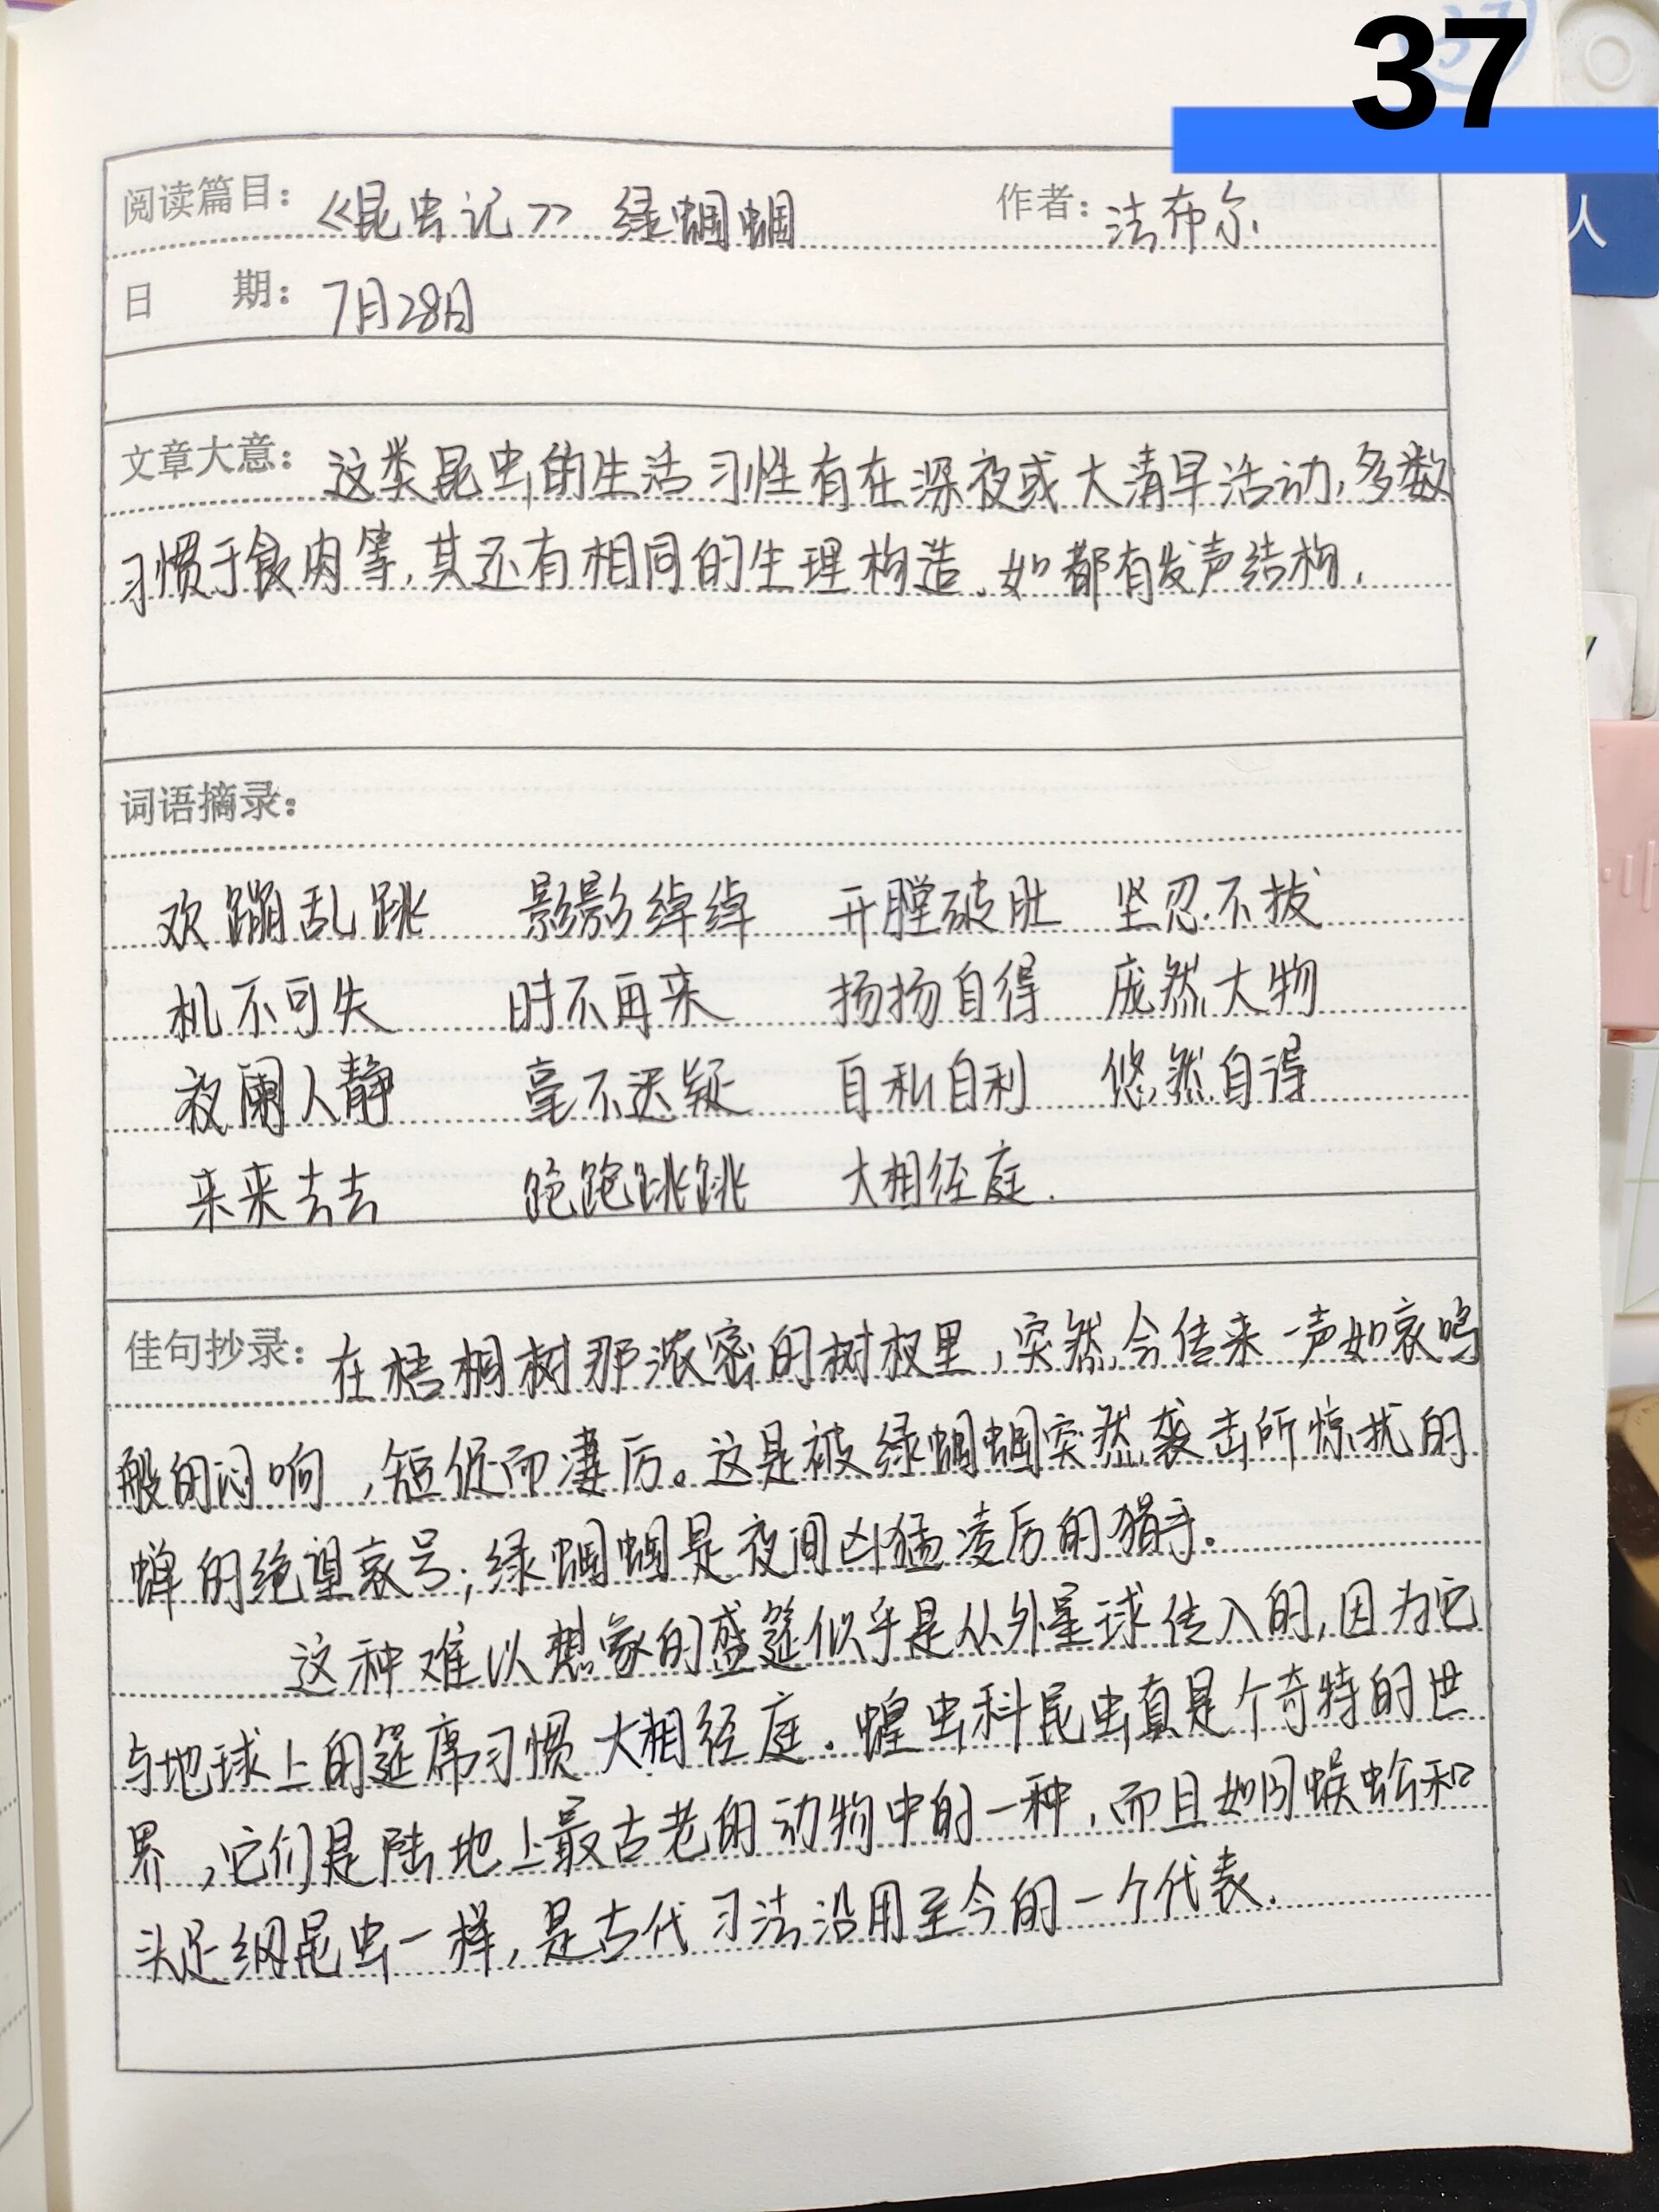 37
人
阅读篇目：《昆虫记》 绿蝈蝈 作者：法布尔
日 期：7月28日
文章大意：这类昆虫的生活习性有在深夜或大清早活动，多数
习惯于食肉等，其还有相同的生理构造，如都有发声结构.
词语摘录：
欢蹦乱跳 影影绰绰 开膛破肚 坚忍不拔
机不可失 时不再来 扬扬自得 庞然大物
夜阑人静 毫不迟疑 自私自利 悠然自得
来来去去 跑跑跳跳 大相径庭.
佳句抄录：在梧桐树那浓密的树杈里，突然会传来一声如哀鸣
般的闷响，短促而凄厉。这是被绿蝈蝈突然袭击所惊扰的
蝉的绝望哀号；绿蝈蝈是夜间凶猛凌厉的猎手。
这种难以想象的盛筵似乎是从外星球传入的，因为它
与地球上的筵席习惯大相径庭．蝗虫科昆虫真是个奇特的世
界，它们是陆地上最古老的动物中的一种，而且如同蜈蚣和
头足纲昆虫一样，是古代习法沿用至今的一个代表.